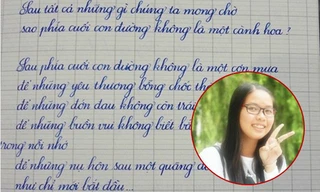 Sau tất cả những gì chúng ta mong chờ
sao phía cuối con đường không là một cành hoa ?
Sau phía cuối con đường không là một cơn mưa
để những yêu thương bỗng chốc th
để những đớn đau không còn trá
để những buồn vui không biết bà
trong nỗi nhớ
để những nụ hôn sau một quãng đ
như chỉ mới bắt đầu...